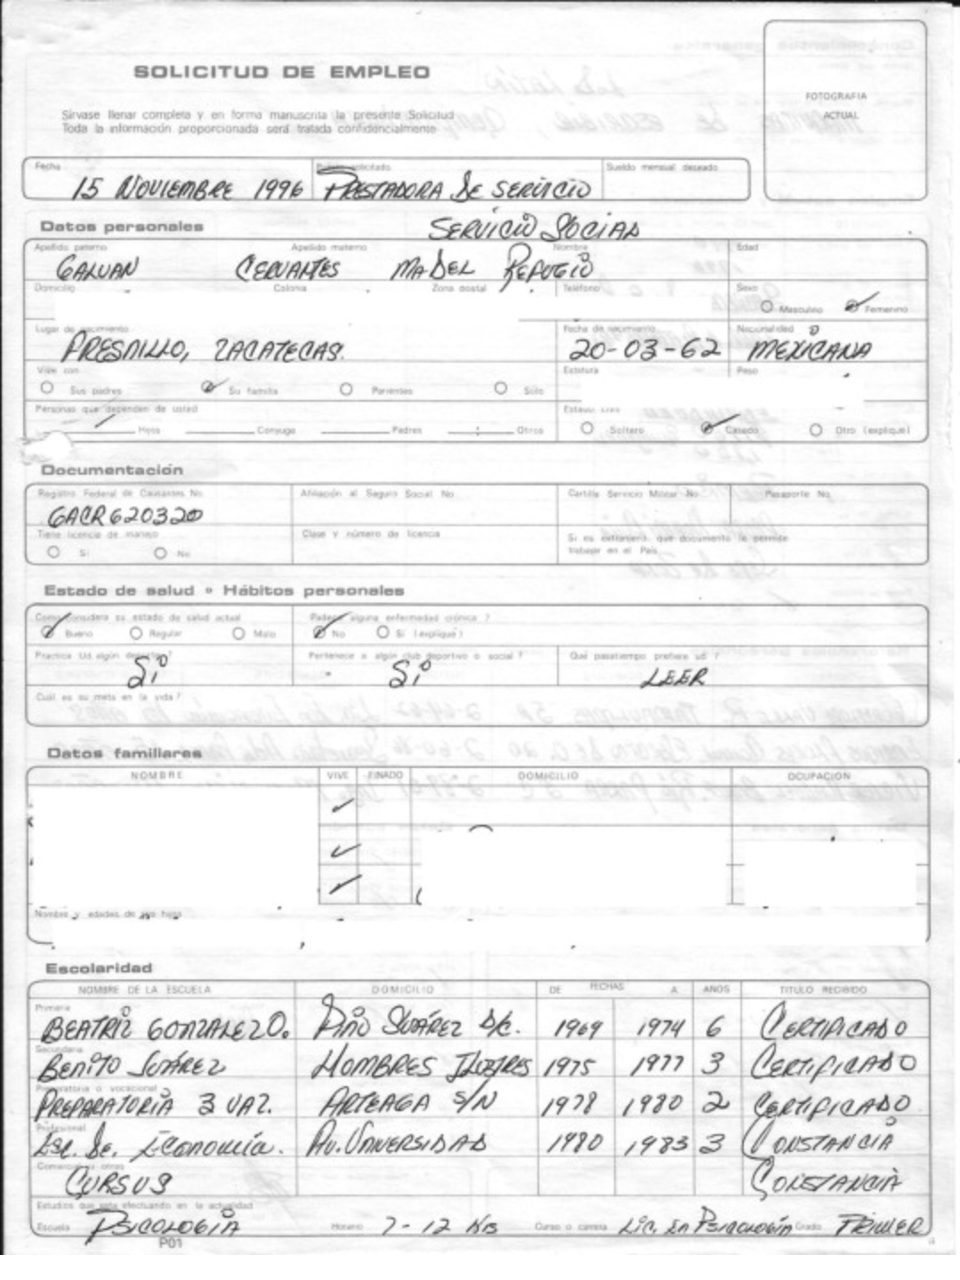 FOTOGRAFIA
ACTUAL
SOLICITUD DE EMPLEO
Sírvase llenar completa y en forma manuscrita la presente Solicitud
Toda la información proporcionada será tratada confidencialmente
Fecha solicitado Sueldo mensual deseado
15 NOVIEMBRE 1996 PRESTADORA DE SERVICIO
Datos personales SERVICIO SOCIAL
Apellido paterno Apellido materno Nombre Edad
GALVAN CERVANTES MA DEL REFUGIO
Domicilio Colonia Zona postal Teléfono Sexo
Masculino Femenino
Lugar de nacimiento Fecha de nacimiento Nacionalidad
FRESNILLO, ZACATECAS. 20-03-62 MEXICANA
Vive con Estatura Peso
Sus padres Su familia Parientes Solo
Personas que dependen de usted Estado civil
Hijos Conyuge Padres Otros Soltero Casado Otro (explique)
Documentación
Registro Federal de Causantes No. Afiliación al Seguro Social No. Cartilla Servicio Militar No. Pasaporte No.
GACR620320
Tiene licencia de manejo Clase y número de licencia Si es extranjero, que documento le permite
Si No trabajar en el País
Estado de salud • Hábitos personales
Como considera su estado de salud actual Padece alguna enfermedad crónica ?
Bueno Regular Malo No Si (explique)
Practica Ud. algún deporte? Pertenece a algún club deportivo o social ? Qué pasatiempo prefiere ud ?
Si Si LEER
Cuál es su meta en la vida ?
Datos familiares
NOMBRE VIVE FINADO DOMICILIO OCUPACION
Nombre y edades de sus hijos
Escolaridad
NOMBRE DE LA ESCUELA DOMICILIO DE FECHAS A AÑOS TITULO RECIBIDO
Primaria
BEATRIZ GONZALEZ O. PINO SUÁREZ S/C. 1969 1974 6 CERTIFICADO
Secundaria
BENITO JUÁREZ HOMBRES ILUSTRES 1975 1977 3 CERTIFICADO
Preparatoria o vocacional
PREPARATORIA 3 UAZ. ARTEAGA S/N 1978 1980 2 CERTIFICADO
Profesional
Esc. De. Economía. AV. UNIVERSIDAD 1980 1983 3 CONSTANCIA
Comercial u otras
CURSOS CONSTANCIA
Estudios que esta efectuando en la actualidad
Escuela PSICOLOGÍA Horario 7-12 Hrs Curso o carrera LIC. EN PSICOLOGÍA Grado PRIMER
P01